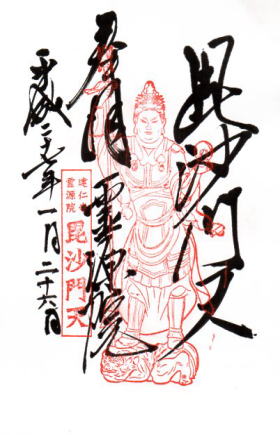 毘沙門天
奉拝
霊源院
平成二十七年一月二十六日
建仁寺
霊源院
毘沙門天